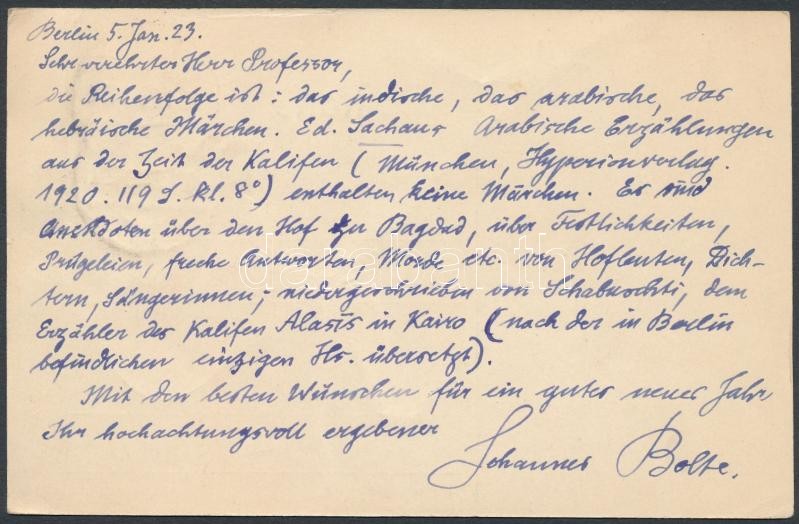 Berlin 5. Jan. 23.
Sehr verehrter Herr Professor,
die Reihenfolge ist: das indische, das arabische, das
hebräische Märchen. Ed. Sachaus Arabische Erzählungen
aus der Zeit der Kalifen (München, Hyperionverlag.
1920. 119 S. kl. 8°) enthalten keine Märchen. Es sind
Anekdoten über den Hof zu Bagdad, über Festlichkeiten,
Prügeleien, freche Antworten, Morde etc. von Hofleuten, Dich-
tern, Sängerinnen, niedergeschrieben von Schabuschti, dem
Erzähler des Kalifen Alasis in Kairo (nach der in Berlin
befindlichen einzigen Hs. übersetzt).
Mit den besten Wünschen für ein gutes neues Jahr
Ihr hochachtungsvoll ergebener
Johannes Bolte.
databanth